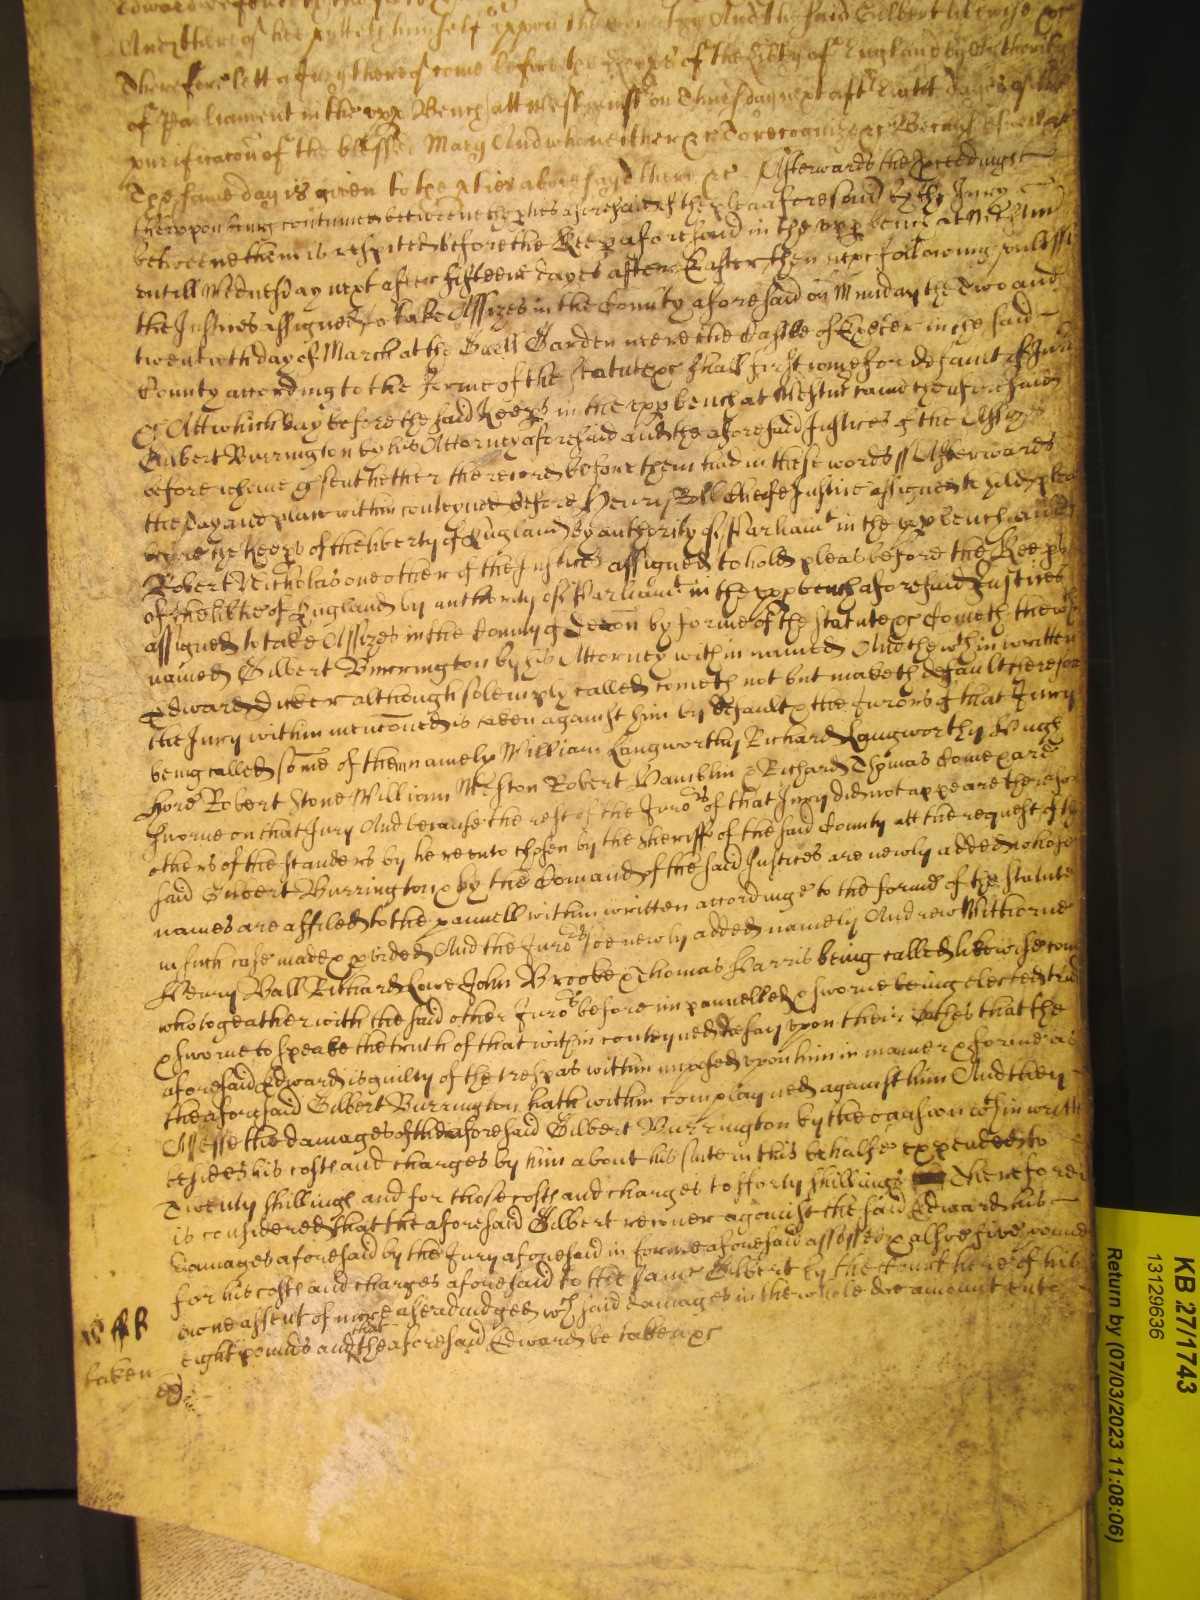 And thereof hee putteth himself uppon the Country And the said Gilbert likewise &c
Therefore lett a Jury thereof come before the Keeps of the lib'ty of England by Authority
of Parliament in the upp Bench att Westminst' on Thursday next aft' Eight dayes of the
purificacon of the blessed Mary And who neither &c To recognize &c Because aswell &c
The same day is given to the pties aforesayd there &c Afterwards the pceedings
thereupon being continued betweene the pties aforesaid of the plea aforesaid by the Jury
betweene them is respited before the Keeps aforesaid in the upp bench at Westm'
untill Wednesday next after fifteene dayes after Easter then next following unlesse
the Justices assigned to take Assizes in the County aforesaid on Munday the Two and
twentith day of March at the Guild Garden neere the Castle of Exeter in the said
County according to the forme of the Statute &c shall first come for default of Juro
&c Att which day before the said Keeps in the upp bench at Westm' came the aforesaid
Gilbert Burrington by his Attorney aforesaid and the aforesaid Justices of the Assizes
before whome &c sent hether the record before them had in these words ss Afterwards
the day and place within conteyned before Henry Roll Cheife Justice assigned to hold pleas
before the Keeps of the liberty of England by authority of Parliam't in the upp bench and
Robert Nicholas one other of the Justices assigned to hold pleas before the Keeps
of the lib'tie of England by authority of Parliam't in the upp bench aforesaid Justices
assigned to take Assizes in the County of Devon by forme of the Statute &c Cometh the wthin
named Gilbert Burrington by his Attorney within named And the wthin written
Edward Ducker although solemply called cometh not but maketh default therefore
the Jury within menconed is taken against him by default & the Jurors of that Jury
being called some of them namely William Langworthy Richard Langworthy Hugh
Hore Robert Stone William Weston Robert Hamblin & Richard Thomas Come & are
sworne on that Jury And because the rest of the Juro'rs of that Jury did not appeare therefore
others of the standers by hereunto chosen by the Sheriffe of the said County att the request of the
said Gilbert Burrington & by the Comand of the said Justices are newly added whose
names are affiled to the pannell within written according to the forme of the Statute
in such case made & pvided And the Juro'rs soe newly added namely Andrew Witthorne
Henry Ball Richard Lowe John Brooke & Thomas Harris being called likewise come
who togeather with the said other Juro'rs before impannelled & sworne being elected tried
& sworne to speake the truth of that within conteyned do say upon their Othes that the
aforesaid Edward is guilty of the trespas within imposed upon him in manner & forme as
the aforesaid Gilbert Burrington hath within complayned against him And they
Assesse the damages of the aforesaid Gilbert Burrington by the occasion wthin written
besides his costs and charges by him about his suite in this behalfe expended to
Twenty shillings and for those costs and charges to fforty shillings Therefore it
is considered that the aforesaid Gilbert recover against the said Edward his
damages aforesaid by the Jury aforesaid in forme aforesaid assessed & alsoe five pounds
for his costs and charges aforesaid to the same Gilbert by the Court here of his
owne assent of more adiudged wch said damages in the whole doe amount unto
eight pounds and that the aforesaid Edward be taken &c
taken
KB 27/1743
13129636
Return by (07/03/2023 11:08:06)